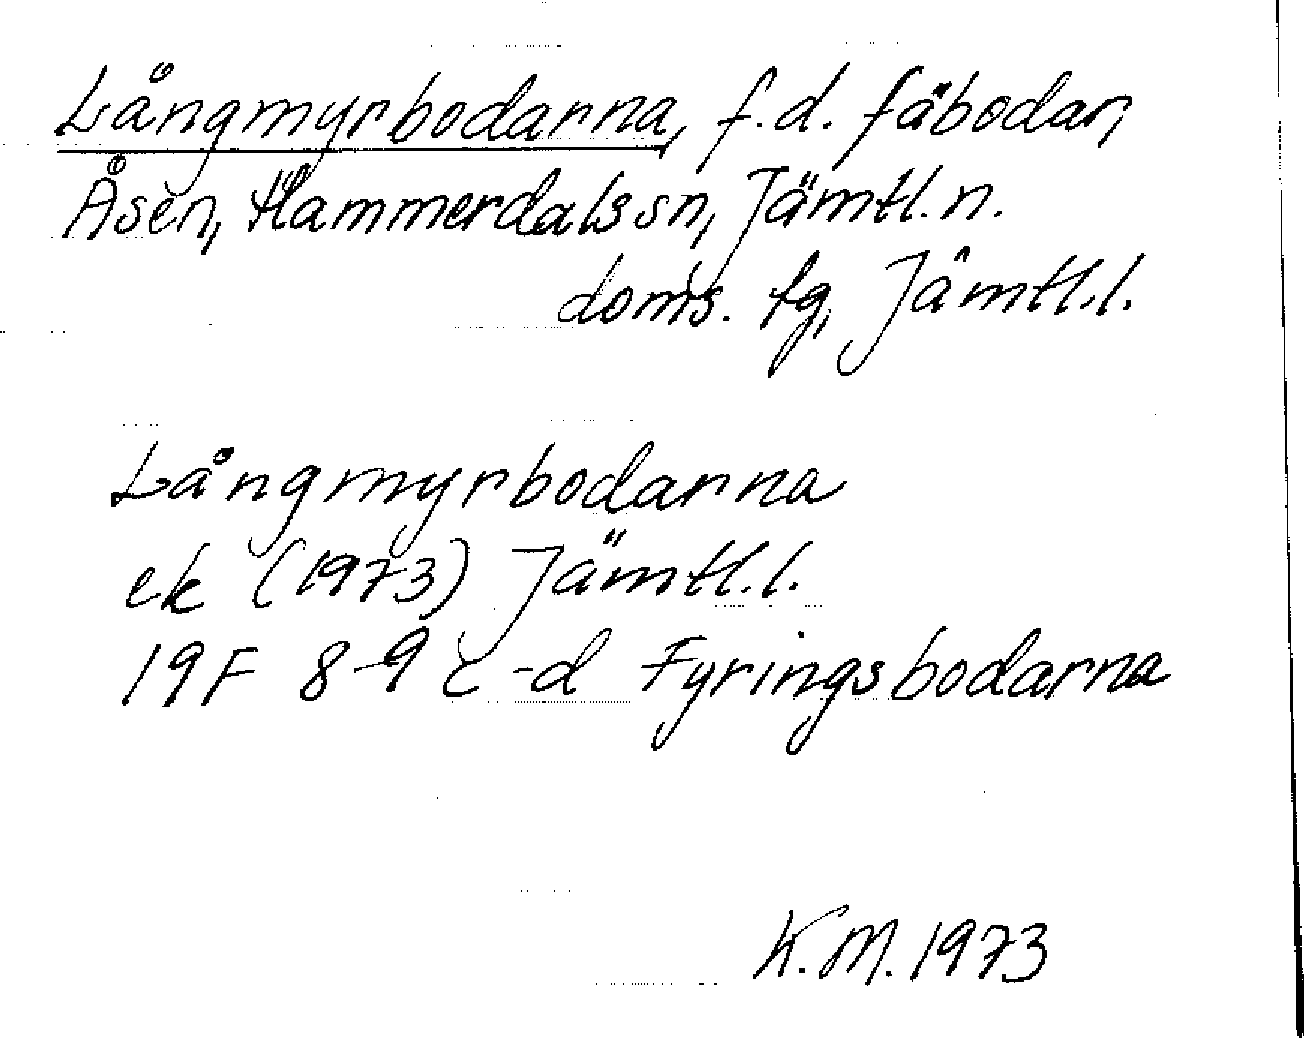 Långmyrbodarna, f.d. fäbodar,
Åsen, Hammerdals sn, Jämtl. n.
doms. tg, Jämtl. l.
Långmyrbodarna
ek (1973) Jämtl. l.
19F 8-9 c-d Fyringsbodarna
K.M. 1973